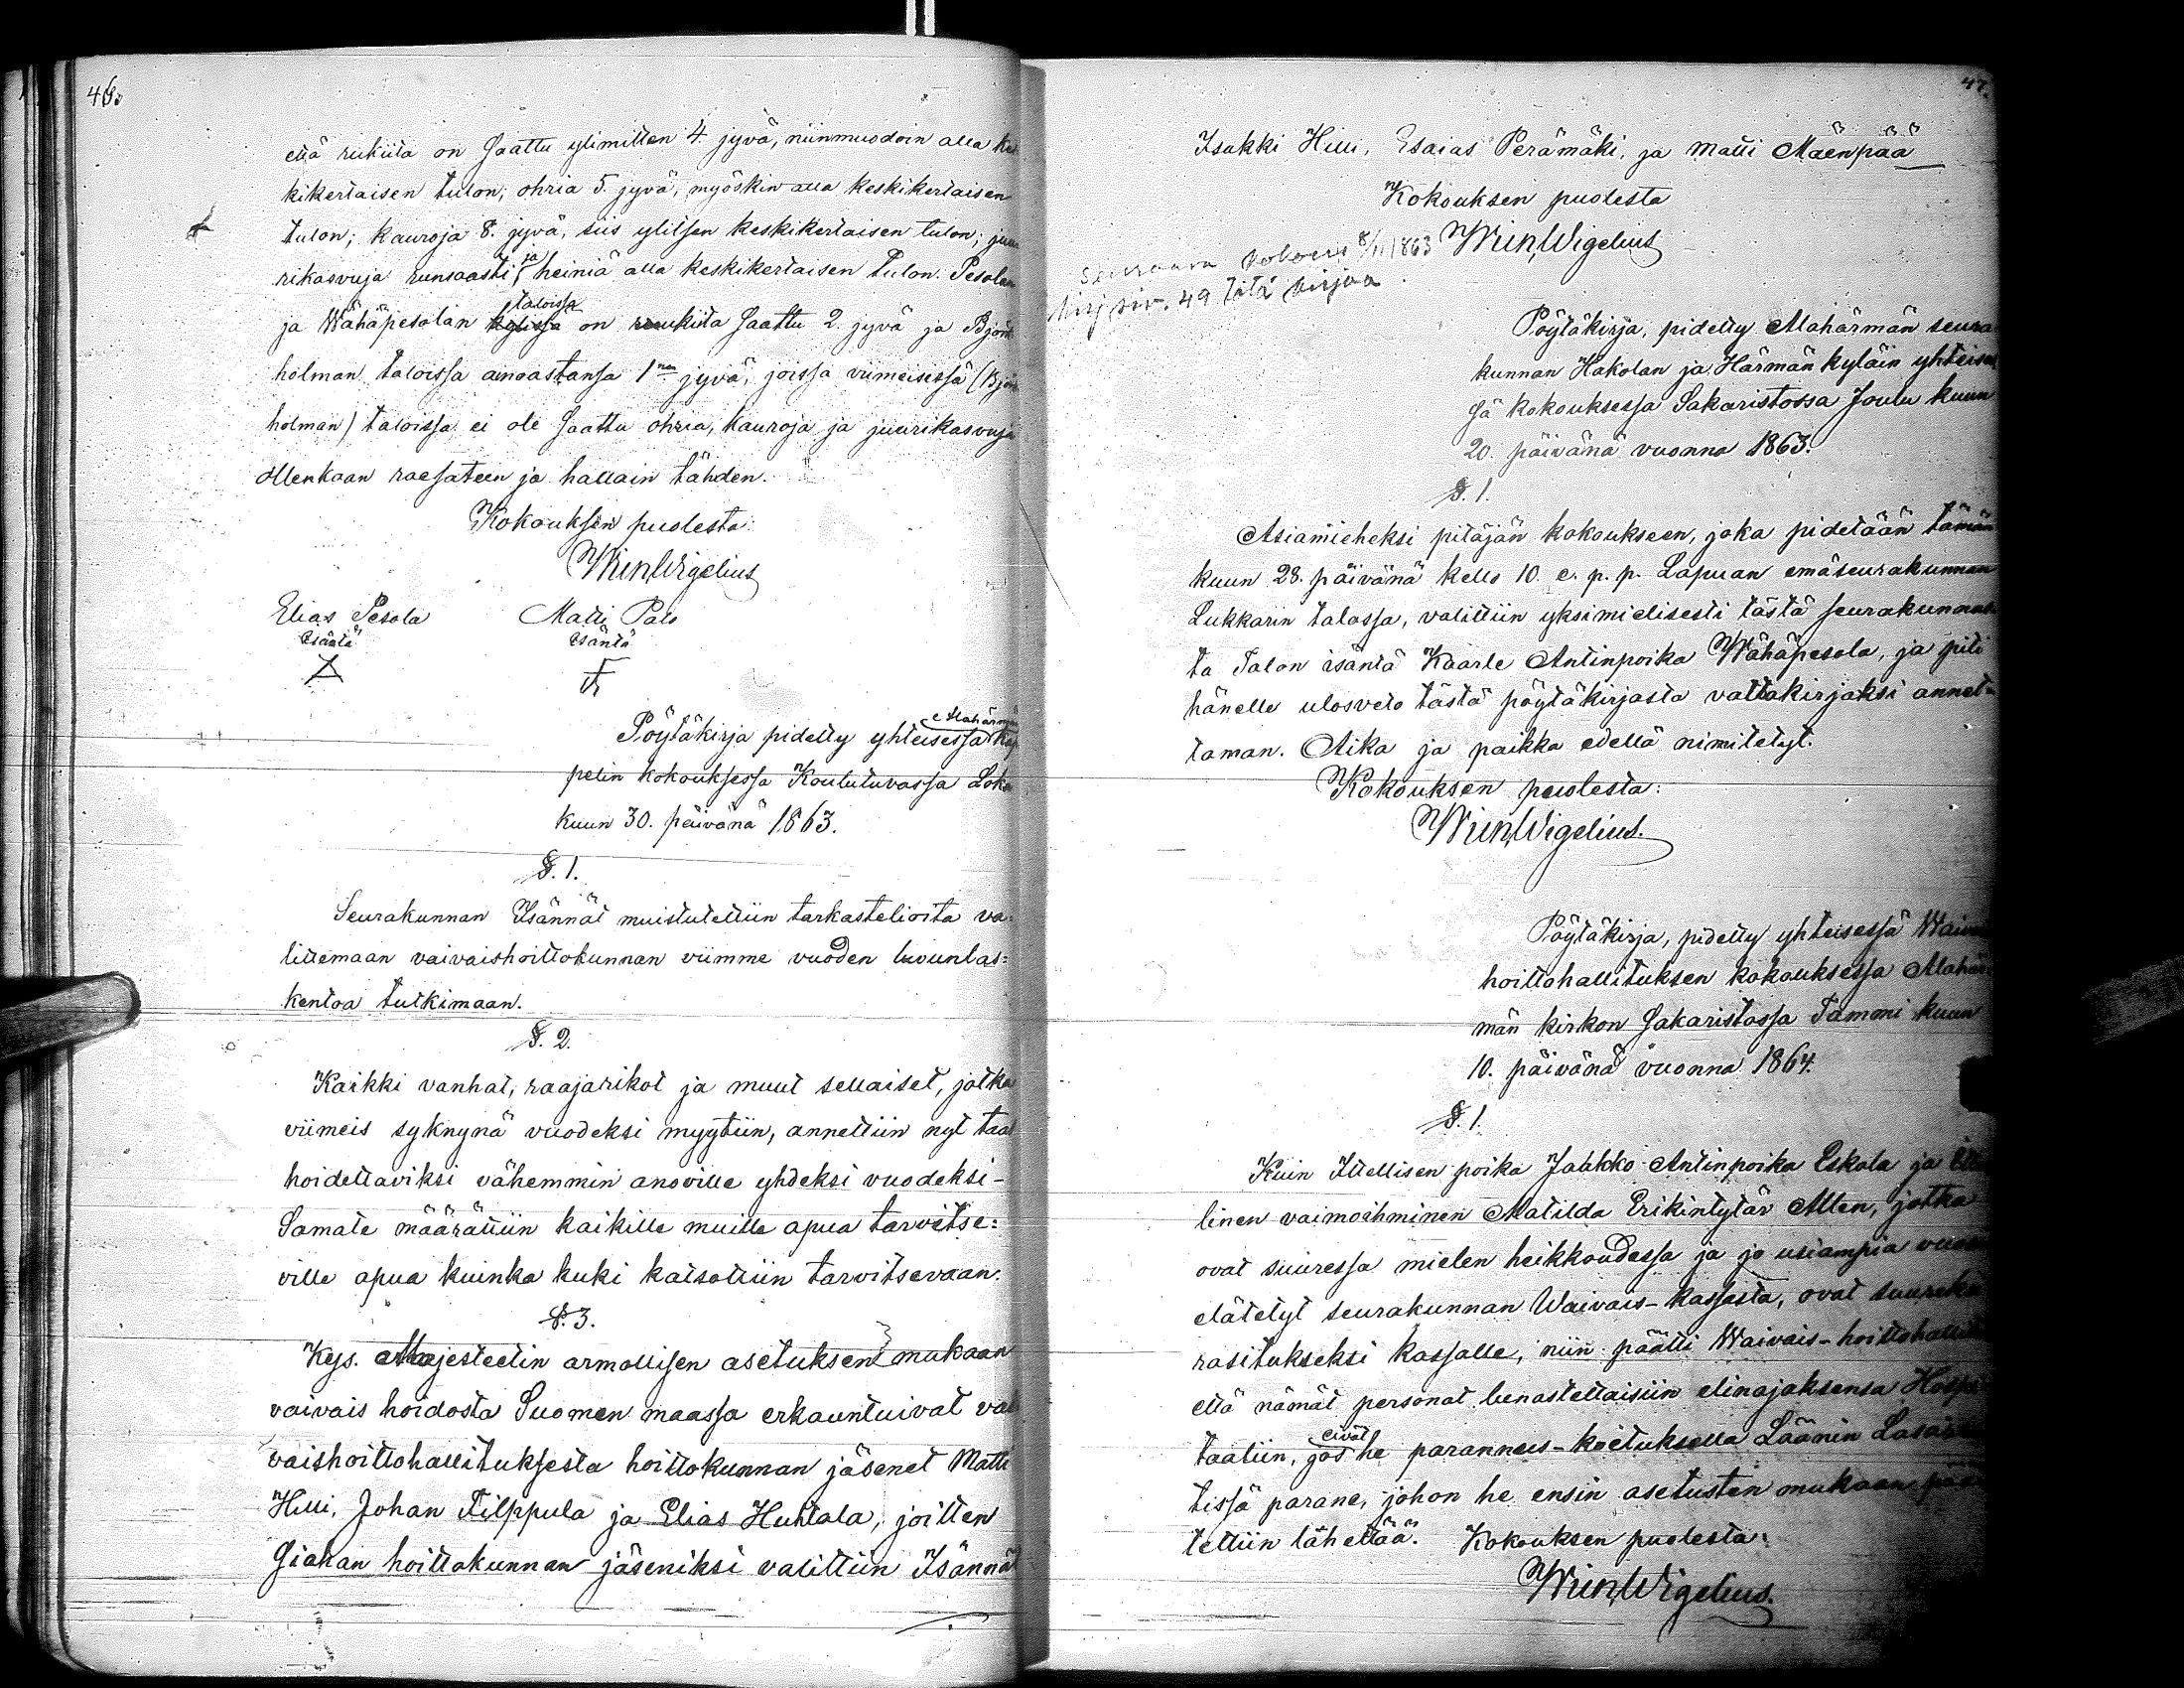 46.
että rukiita on saattu ylimitten 4. jyvä, niinmuodoin alla kes
kikertaisen tulon; ohria 5. jyvä, myöskin alla keskikertaisen
tulon; kauroja 8. jyvä, siis ylitsen keskikertaisen tulon; juu
rikasvuja runsaasti, ja heiniä alla keskikertaisen tulon. Pesolan
ja Wähäpesolan kylissä taloissa on rukiita saattu 2. jyvä ja Björk
holman taloissa ainoastansa 1nen jyvä, joissa viimeisessä (Björk
holman) taloissa ei ole saattu ohria, kauroja ja juurikasvuja
ollenkaan raesateen ja hallain tähden.
Kokouksen puolesta:
Wm Wigelius
Elias Pesola Matti Palo
Isäntä Isäntä
Pöytäkirja pidetty yhteisessä Alahärmän kap
pelin kokouksessa Koulutuvassa Loka
kuun 30. päivänä 1863.
§. 1.
Seurakunnan Isännät muistutettiin tarkastelioita va=
littemaan vaivaishoittokunnan viimme vuoden luvunlas=
kentoa tutkimaan.
§. 2.
Kaikki vanhat, raajarikot ja muut sellaiset, jotka
viimeis syknynä vuodeksi myytiin, annettiin nyt taas
hoidettaviksi vähemmin anoville yhdeksi vuodeksi-
Samate määrättiin kaikille muille apua tarvitse=
ville apua kuinka kuki katsottiin tarvitsevaan.
§. 3.
Keis. Majesteetin armollisen asetuksen mukaan
vaivais hoidosta Suomen maassa erkauntuivat vai
vaishoittohallituksesta hoittokunnan jäsenet Matti
Hilli, Johan Filppula ja Elias Huhtala, joitten
siahan hoittokunnan jäseniksi valittiin Isännät
47.
Isakki Hilli, Esaias Perämäki, ja Matti Mäenpää
Kokouksen puolesta
Wm Wigelius
Seuraava kokous 8/11 1863
kirj siv. 49 tätä kirjaa.
Pöytäkirja, pidetty Alahärmän seura
kunnan Hakolan ja Härmän kyläin yhteises
sä kokouksessa Sakaristossa Joulu kuun
20. päivänä vuonna 1863.
§. 1.
Asiamieheksi pitäjän kokoukseen, joka pidetään tämän
kuun 28. päivänä kello 10. e. p. p. Lapuan emäseurakunnan
Lukkarin talossa, valittiin yksimielisesti tästä seurakunnas
ta Talon isäntä Kaarle Antinpoika Wähäpesola, ja piti
hänelle ulosveto tästä pöytäkirjasta valtakirjaksi annet=
taman. Aika ja paikka edellä nimitetyt.
Kokouksen puolesta:
Wm Wigelius.
Pöytäkirja, pidetty yhteisessä Waivais
hoittohallituksen kokouksessa Alahär
män kirkon sakaristossa Tammi kuun
10. päivänä vuonna 1864.
§. 1.
Kuin Itellisen poika Jaakko Antinpoika Eskola ja itel
linen vaimoihminen Matilda Erikintytär Allen, jotka
ovat suuressa mielen heikkoudessa ja jo usiampia vuosia
elätetyt seurakunnan Waivais-kassasta, ovat suureksi
rasitukseksi kassalle, niin päätti Waivais-hoittohallitus
että nämät personat lunastettaisiin elinajaksensa Hospi
taaliin, jos he eivät paranneis-koetuksella Läänin Lasaret
tissä parane, johon he ensin asetusten mukaan pää
tettiin lähettää. Kokouksen puolesta:
Wm Wigelius.